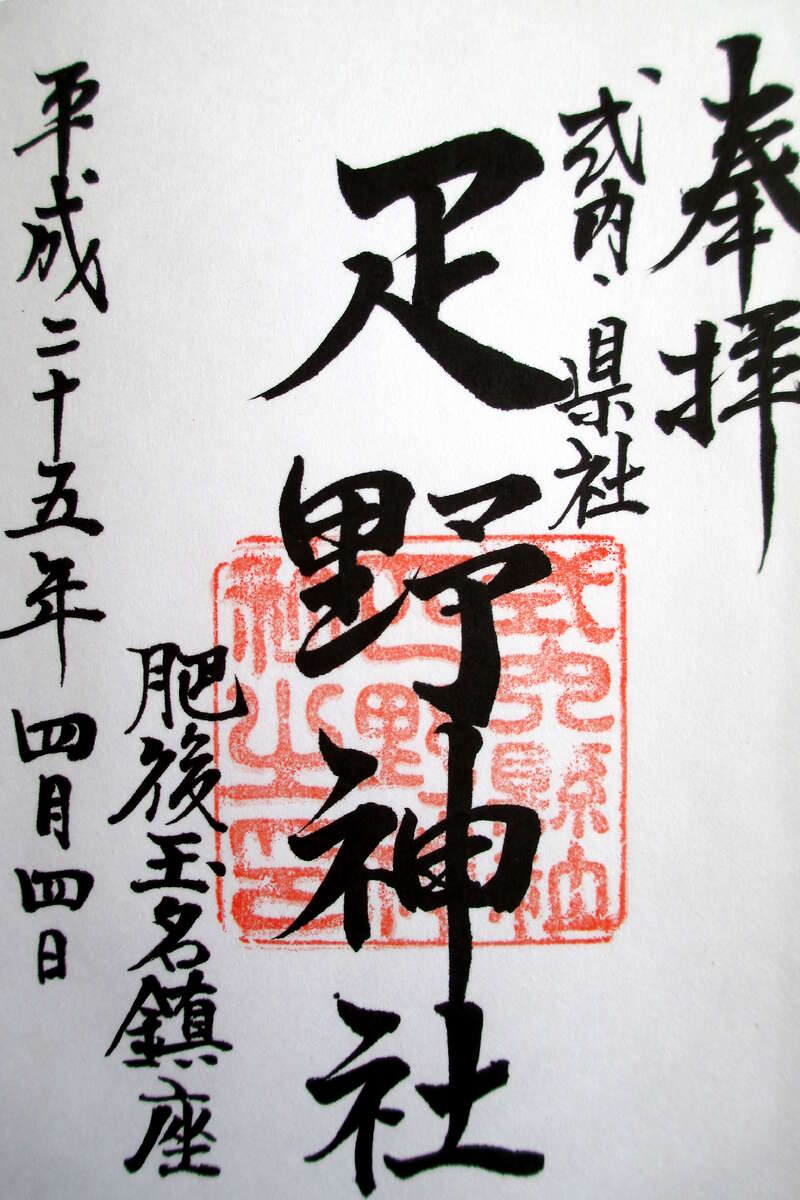 奉拝
式内・県社
疋野神社
肥後玉名鎮座
平成二十五年四月四日
式内縣社
疋野神
社之印